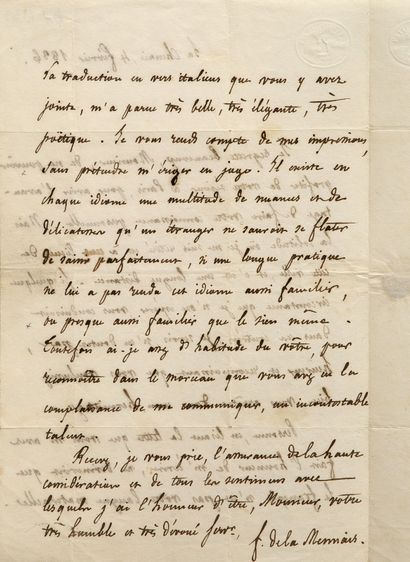 La traduction en vers italiens que vous y avez
jointe, m'a parue très belle, très élégante, très
poëtique. Je vous rends compte de mes impressions,
sans prétendre m'ériger en juge. Il existe en
chaque idiome une multitude de nuances et de
délicatesses qu'un étranger ne sauroit se flatter
de saisir parfaitement, si une longue pratique
ne lui a pas rendu cet idiome aussi familier,
ou presque aussi familier que le sien même.
Toutefois ai-je assez d'habitude du vôtre, pour
reconnoître dans le morceau que vous avez eu la
complaisance de me communiquer, un incontestable
talent.
Recevez, je vous prie, l'assurance de la haute
considération et de tous les sentimens avec
lesquels j'ai l'honneur d'être, Monsieur, votre
très humble et très dévoué servr.
f. de la Mennais.